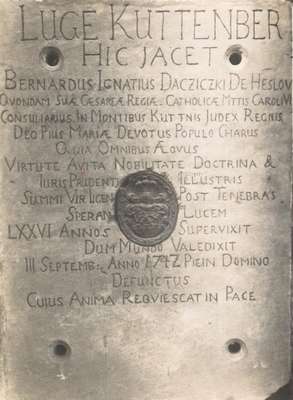 LUGE KUTTENBER
HIC JACET
BERNARDUS IGNATIUS DACZICZKI DE HESLOV
QVONDAM SUÆ CÆSAREÆ REGIÆ CATHOLICÆ MTTIS CAROLI VI
CONSILIARIUS IN MONTIBUS KUTTNIS JUDEX REGNIS
DEO PIUS MARIÆ DEVOTUS POPULO CHARUS
OMNIBUS ÆQVUS
VIRTUTE AVITA NOBILITATE DOCTRINA &
IURIS PRUDENT & ILLUSTRIS
SUMMI VIR POST TENEBRAS
SPERAN LUCEM
LXXVI ANNOS SUPERVIXIT
DUM MUNDO VALEDIXIT
III SEPTEMB: ANNO 1742 PIE IN DOMINO
DEFUNCTUS
CUIUS ANIMA REQVIESCAT IN PACE